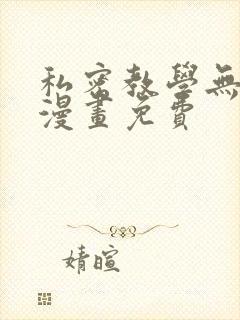 私密教學無
漫畫免費
婧暄